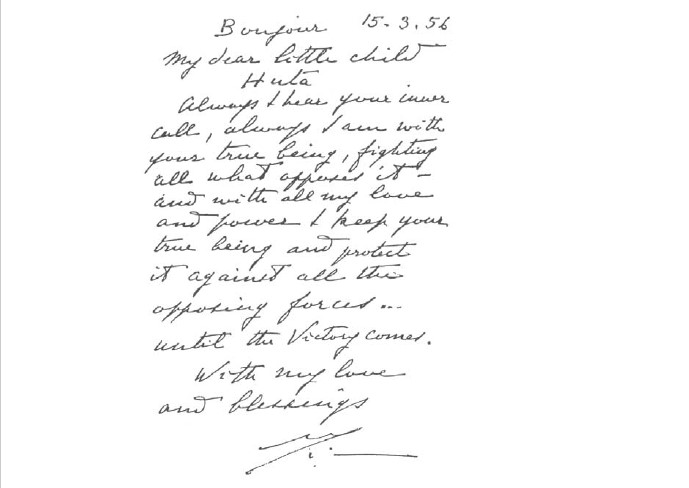 Bonjour 15-3.56
My dear little child
Huta
Always I hear your inner
call, always I am with
your true being, fighting
all what opposes it –
and with all my love
and power I keep your
true being and protect
it against all the
opposing forces...
until the Victory comes.
With my love
and blessings